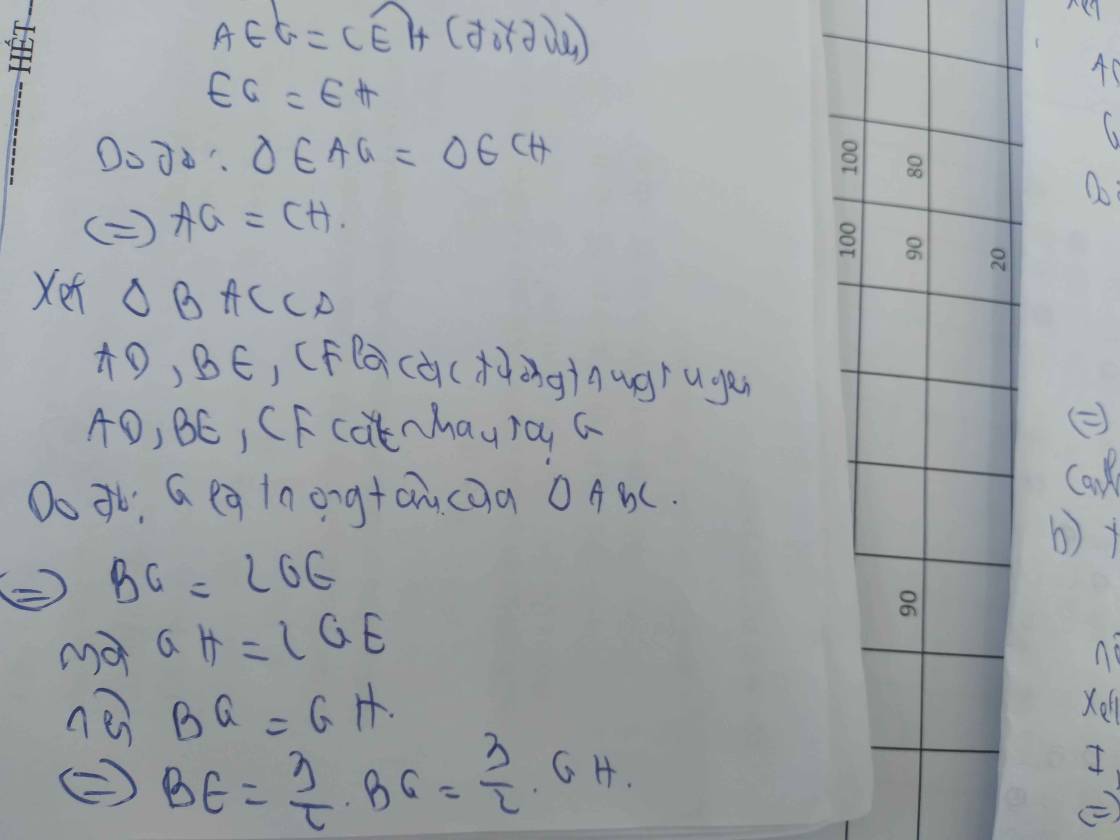 HẾT
AEG = CEH (đối đỉnh)
EG = EH
Do đó: Δ EAG = Δ ECH
(=) AG = CH.
Xét Δ BAC có
AD, BE, CF là các đường trung tuyến
AD, BE, CF cắt nhau tại G
Do đó: G là trọng tâm của Δ ABC.
(=) BG = 2GE
mà GH = 2GE
nên BG = GH.
(=) BE = 3/2 . BG = 3/2 . GH.
100 80
100 90 20
90
(=)
b)